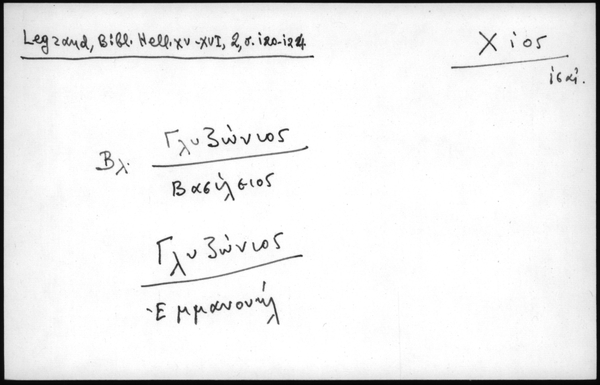 Legrand, Bibl. Hell. XV-XVI, 2, σ. 120-124
Χίος
ις αι.
Βλ. Γλυζώνιος
Βασίλειος
Γλυζώνιος
Εμμανουήλ